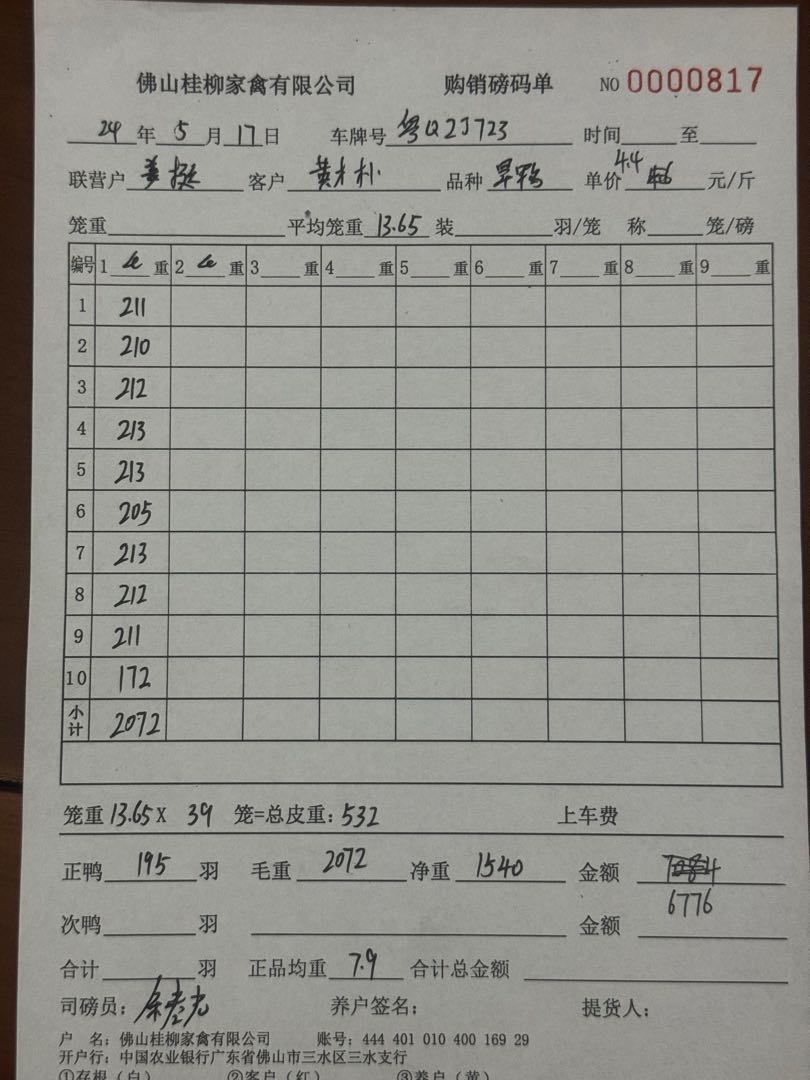 佛山桂柳家禽有限公司 购销磅码单 NO 0000817
24年5月17日 车牌号 粤Q2J723 时间 至
联营户 客户 黄才朴 品种 旱鸭 单价 4.4 元/斤
笼重 平均笼重 13.65 装 羽/笼 称 笼/磅
编号 1 重 2 重 3 重 4 重 5 重 6 重 7 重 8 重 9 重
1 211
2 210
3 212
4 213
5 213
6 205
7 213
8 212
9 211
10 172
小计 2072
笼重 13.65 X 39 笼=总皮重: 532 上车费
正鸭 195 羽 毛重 2072 净重 1540 金额
6776
次鸭 羽 金额
合计 羽 正品均重 7.9 合计总金额
司磅员: 养户签名: 提货人:
户 名: 佛山桂柳家禽有限公司 账号: 444 401 010 400 169 29
开户行: 中国农业银行广东省佛山市三水区三水支行
①存根(白) ②客户(红) ③养户(黄)